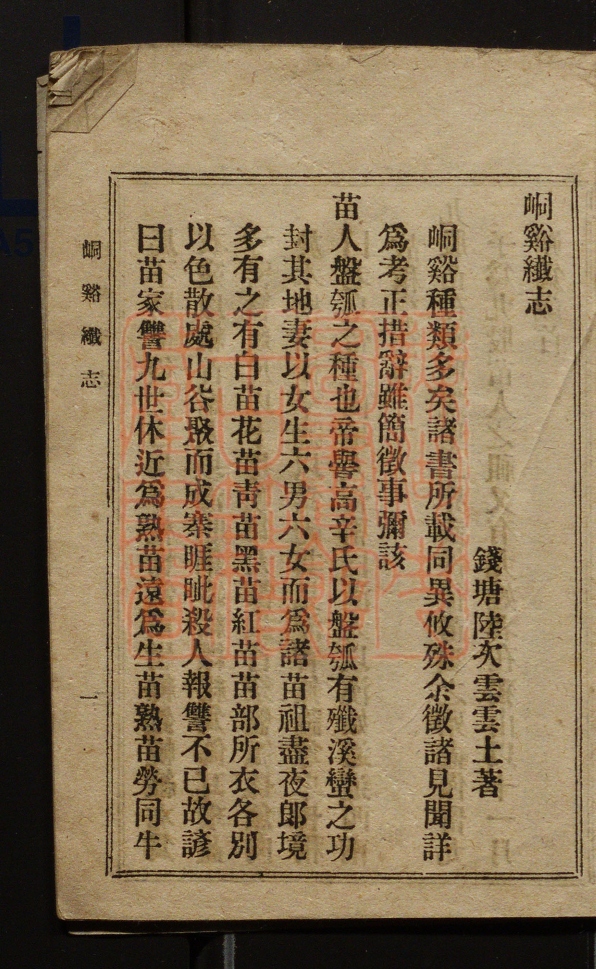 峒谿纖志
錢塘陸次雲雲士著
峒谿種類多矣諸書所載同異攸殊余徵諸見聞詳
爲考正措辭雖簡徵事彌該
苗人盤瓠之種也帝嚳高辛氏以盤瓠有殲溪蠻之功
封其地妻以女生六男六女而爲諸苗祖盡夜郎境
多有之有白苗花苗靑苗黑苗紅苗苗部所衣各別
以色散處山谷聚而成寨睚眦殺人報讐不已故諺
曰苗家讐九世休近爲熟苗遠爲生苗熟苗勞同牛
峒谿纖志
一